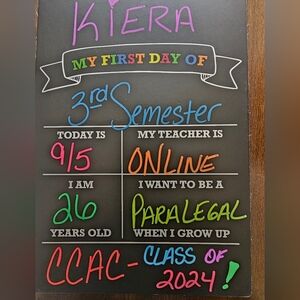 KiERA
MY FIRST DAY OF
3rd Semester
TODAY IS
9/5
MY TEACHER IS
ONLINE
I AM
26
YEARS OLD
I WANT TO BE A
PARALEGAL
WHEN I GROW UP
CCAC - CLASS OF
2024!